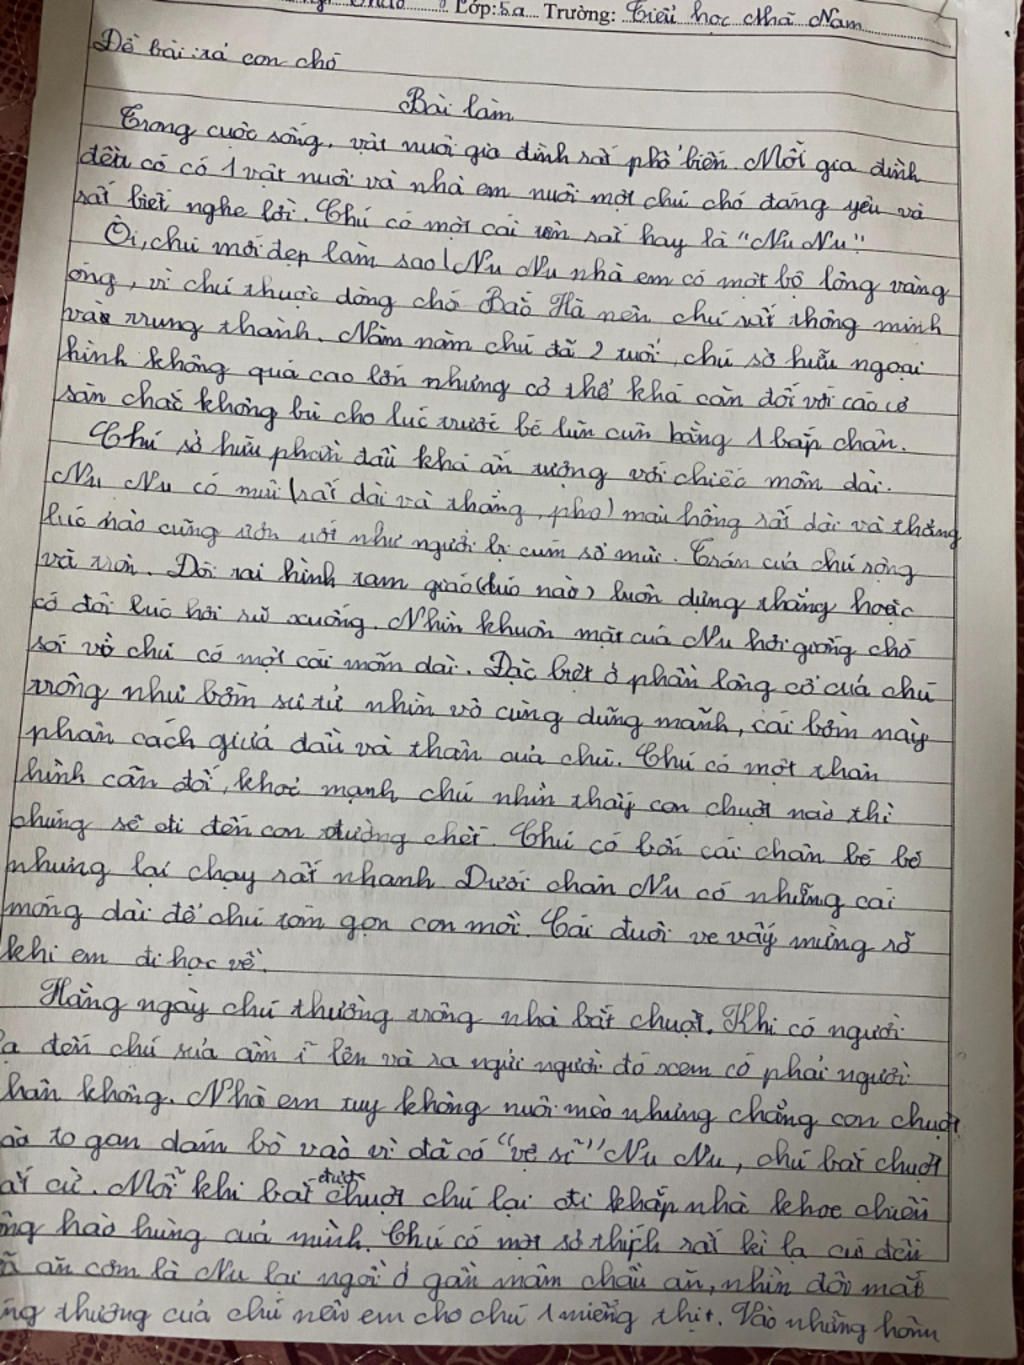 Lớp: 5a Trường: Tiểu học Nhã Nam
Đề bài: tả con chó
Bài làm
Trong cuộc sống, vật nuôi gia đình rất phổ biến. Mỗi gia đình
đều có có 1 vật nuôi và nhà em nuôi một chú chó đáng yêu và
rất biết nghe lời. Chú có một cái tên rất hay là "Nu Nu".
Ôi, chú mới đẹp làm sao! Nu Nu nhà em có một bộ lông vàng
óng, vì chú thuộc dòng chó Bắc Hà nên chú rất thông minh
và trung thành. Năm năm chú đã 2 tuổi, chú sở hữu ngoại
hình không quá cao lớn nhưng cơ thể khá cân đối với các cơ
săn chắc không bù cho lúc trước bé lùn cũn bằng 1 bắp chân.
Chú sở hữu phần đầu khá ấn tượng với chiếc mõm dài.
Nu Nu có mũi (rất dài và thẳng, pho) màu hồng rất dài và thẳng
lúc nào cũng ươn ướt như người bị cúm sổ mũi. Trán của chú rộng
và tròn. Đôi tai hình tam giác (lúc nào) luôn dựng thẳng hoặc
có đôi lúc hơi rủ xuống. Nhìn khuôn mặt của Nu hơi giống chó
sói vì chú có một cái mõm dài. Đặc biệt ở phần lông cổ của chú
trông như bờm sư tử nhìn vô cùng dũng mãnh, cái bờm này
phân cách giữa đầu và thân của chú. Chú có một thân
hình cân đối, khoẻ mạnh chú nhìn thấy con chuột nào thì
chúng sẽ đi đến con đường chết. Chú có bốn cái chân bé bé
nhưng lại chạy rất nhanh Dưới chân Nu có những cái
móng dài để chú tóm gọn con mồi. Cái đuôi ve vẩy mừng rỡ
khi em đi học về.
Hằng ngày chú thường trông nhà bắt chuột. Khi có người
đến chú sủa ầm ĩ lên và ra ngửi người đó xem có phải người
không. Nhà em tuy không nuôi mèo nhưng chẳng con chuột
to gan dám bò vào vì đã có "vệ sĩ" Nu Nu, chú bắt chuột
cừ. Mỗi khi bắt được chuột chú lại đi khắp nhà khoe chiến
hào hùng của mình. Chú có một sở thích rất kì lạ cứ đến
ăn cơm là Nu lại ngồi ở gần mâm chầu ăn, nhìn đôi mắt
thương của chú nên em cho chú 1 miếng thịt. Vào những hôm